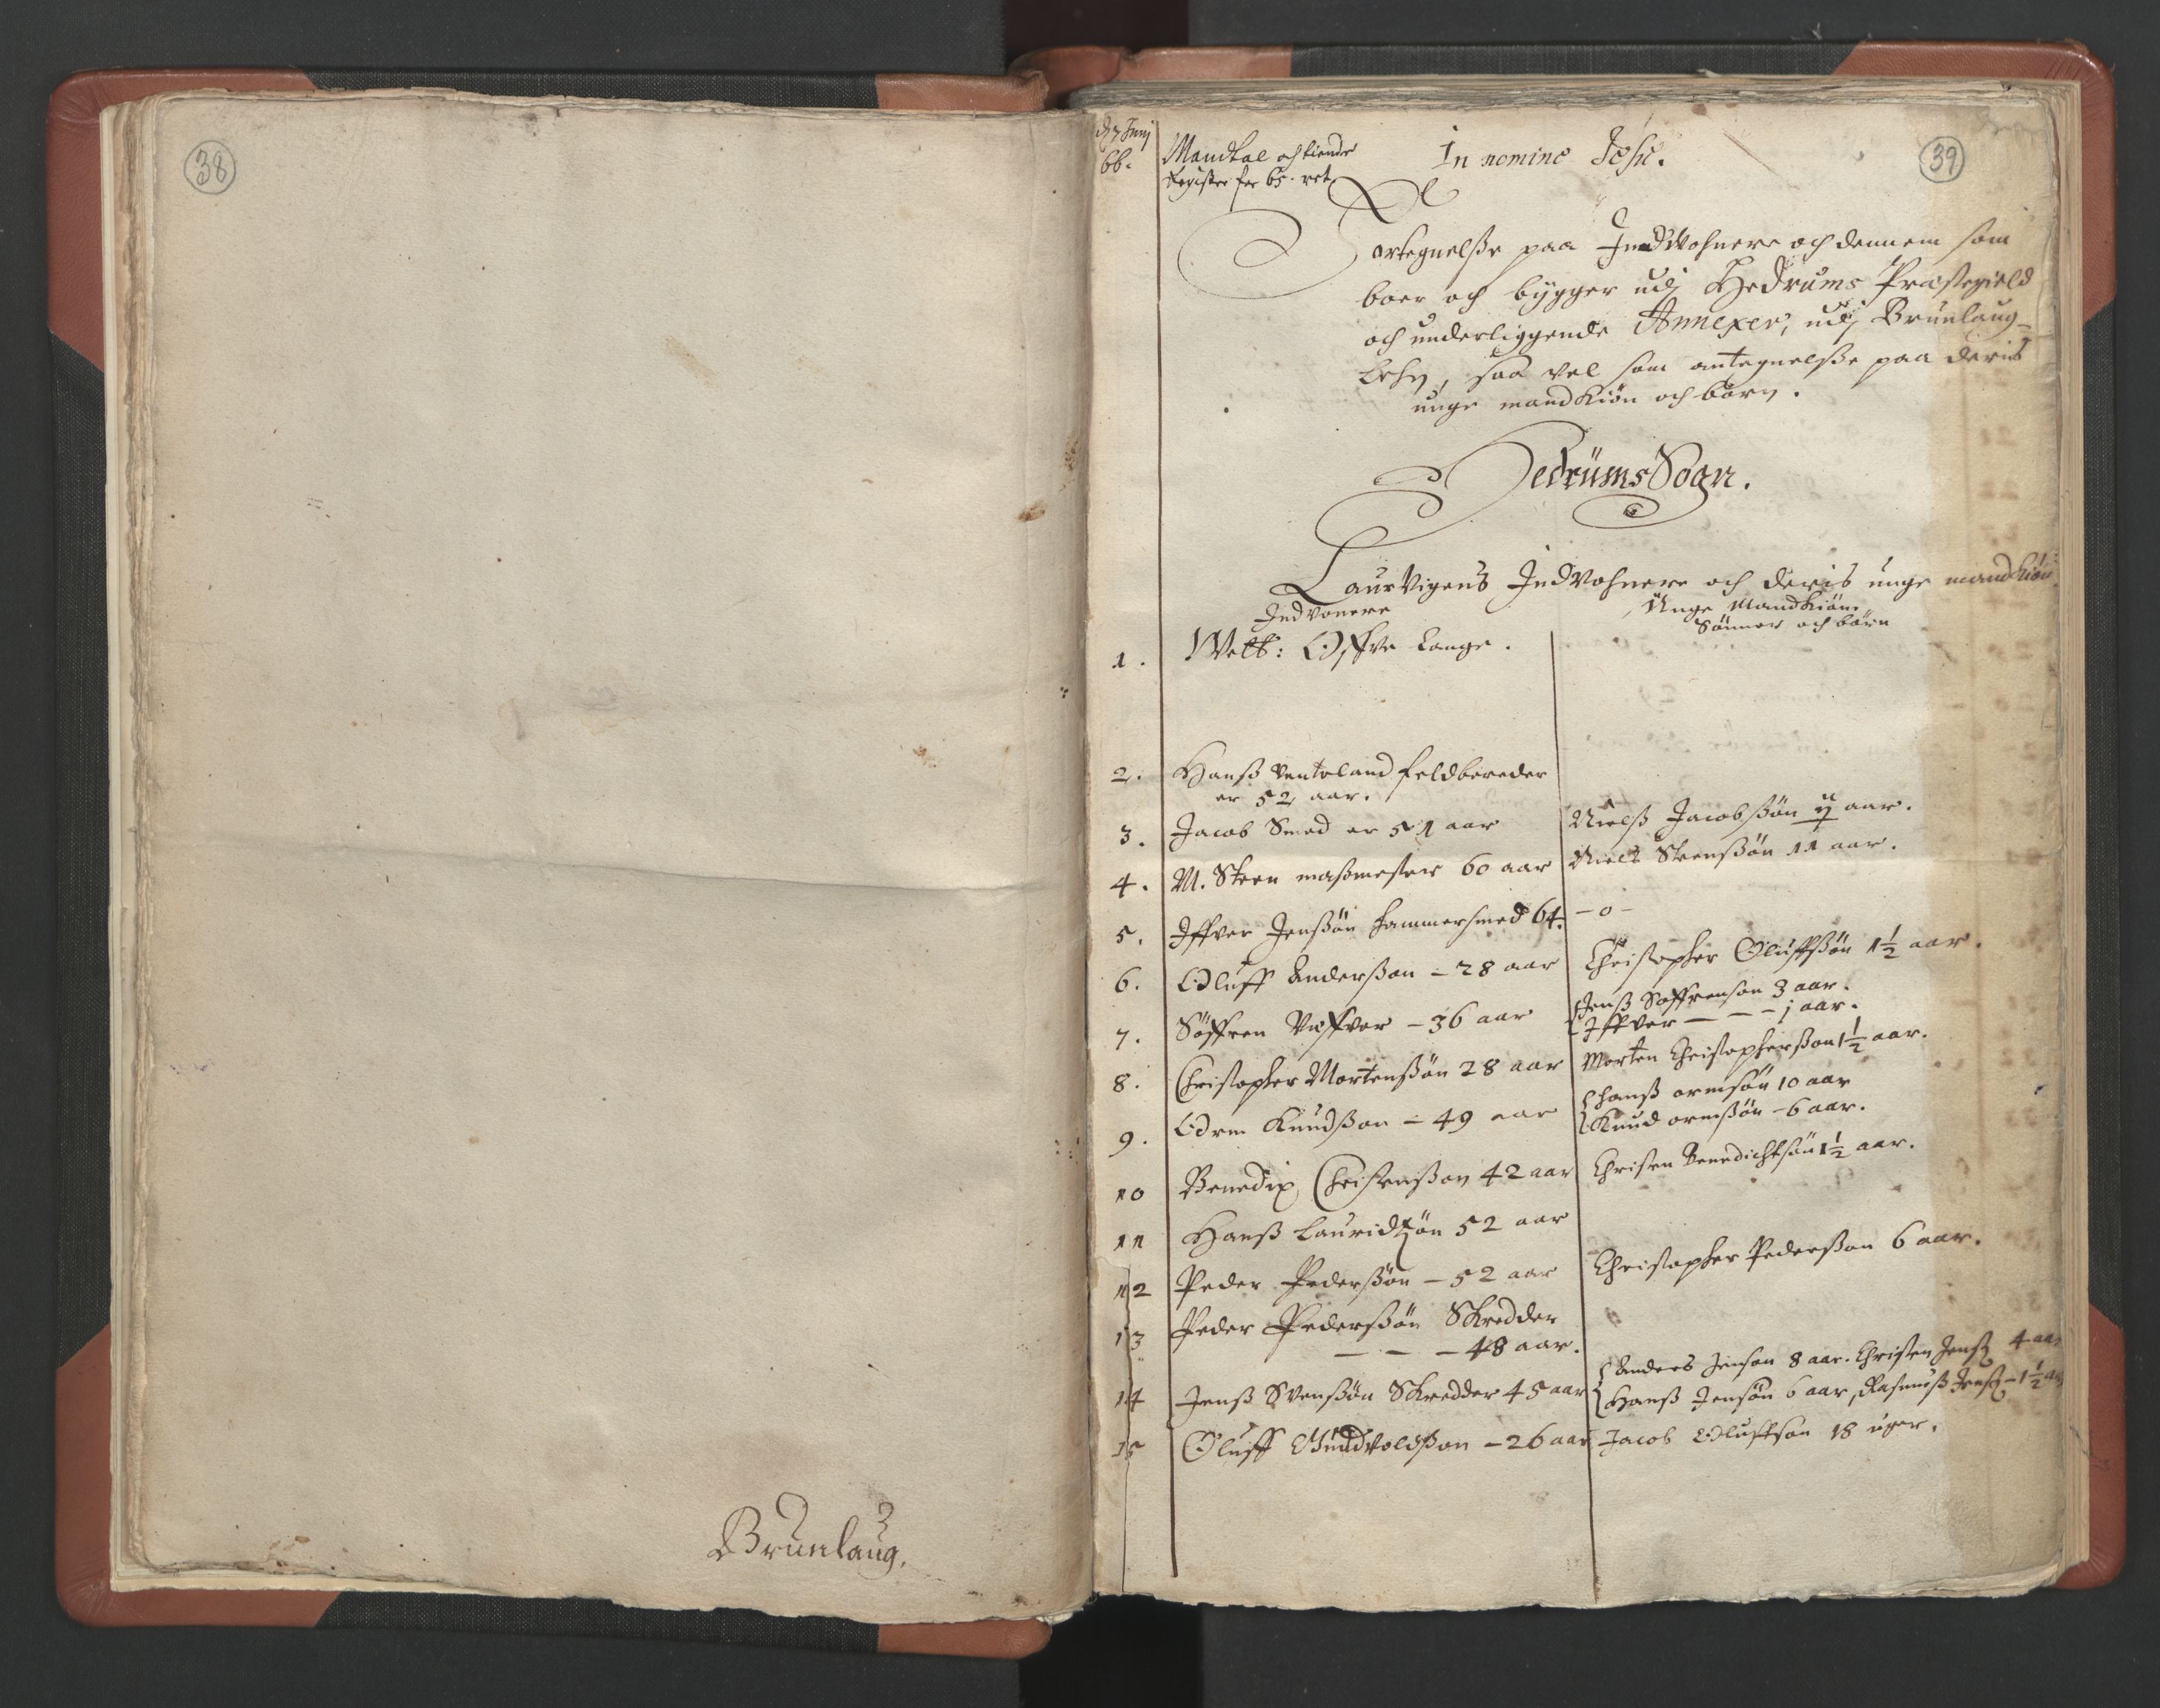 38
Brunlaug.
39
d. 7 Junij
66.
Mandtal och tiende
Register for 65. ret
In nomine Jesu.
Fortegnelße paa Indvohnere och dennem som
boer och bygger udj Hedrums Præstegield
och underliggende Annexer, udj Brunlaug-
Lehn, saa vel som antegnelße paa deris
unge mandkiön och börn.
Hedrüms Sogn.
Laurvigens Indvohnere och deris unge mandkiön
Indvonere
Unge Mandkiön,
Sönner och börn
1. Welb: Offve Lange.
2. Hanß Ventoland feldbereder
er 52 aar.
3. Jacob Smed er 51 aar
Nielß Jacobßön aar.
4. M. Steen maßmester 60 aar
Niels Steenßön 11 aar.
5. Iffver Jenßön hammersmed 64.
-o-
6. Oluff Anderßon - 28 aar
Christopher Oluffßön 1½ aar.
7. Söffren Væffver - 36 aar
Jenß Söffrenson 3 aar.
Iffver - - - 1 aar.
8. Christopher Mortenßön 28 aar
Morten Christopherßon 1½ aar.
9. Orm Knudßon - 49 aar
Hanß ormsön 10 aar
Knud ormßön - 6 aar.
10 Benedix Christenßon 42 aar
Christen Benedichtsön 1½ aar.
11 Hanß Lauridtzön 52 aar
12 Peder Pederßön - 52 aar
Christopher Pederßon 6 aar.
13 Peder Pederßön Skredder
- - - 48 aar.
14 Jenß Svenßön Skredder 45 aar
Anders Jenson 8 aar. Christen Jenß 4 aar
Hanß Jensön 6 aar, Rasmuß Jenß - 1½ aar
15 Oluff Gundvoldßon - 26 aar
Jacob Oluffsön 18 uger.